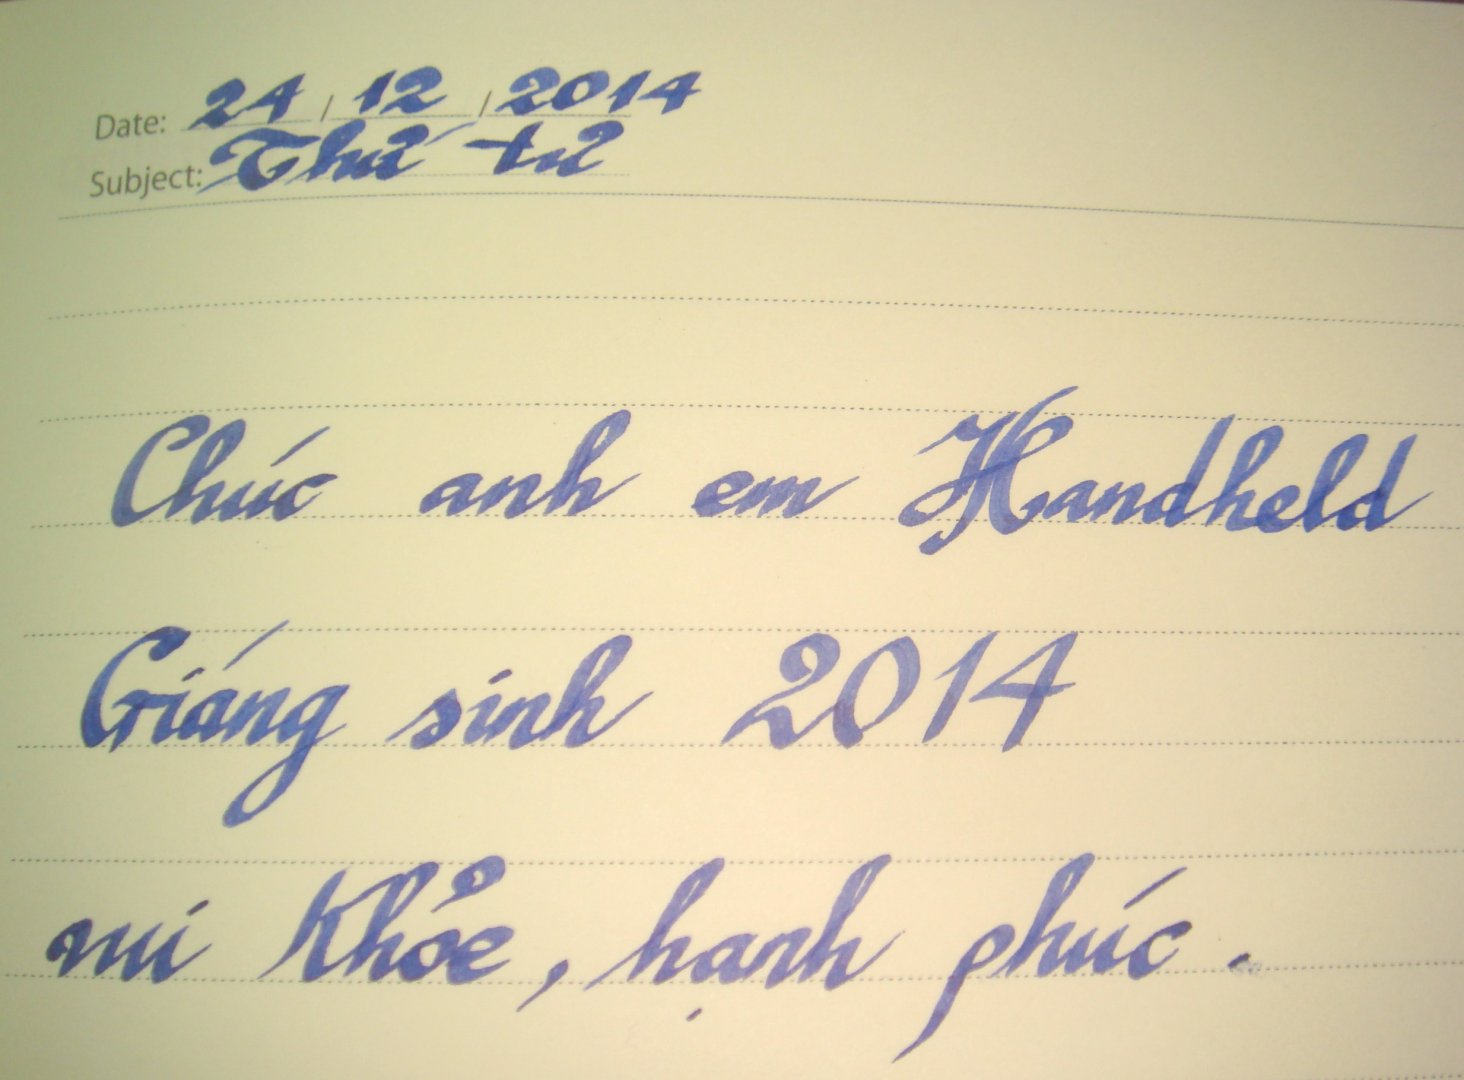 Date: 24 / 12 / 2014
Subject: Thứ tư
Chúc anh em Handheld
Giáng sinh 2014
vui khỏe, hạnh phúc.